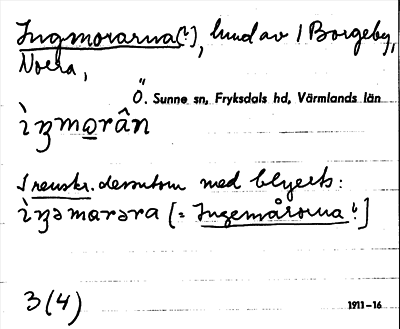 Ingmorarna(?), lund av / Borgeby,
Norra,
Ö. Sunne sn, Fryksdals hd, Värmlands län
ìŋmo̲rân
I renskr. dessutom med blyerts:
ìŋəmarəra [= Ingemårarna?]
3 (4)
1911-16